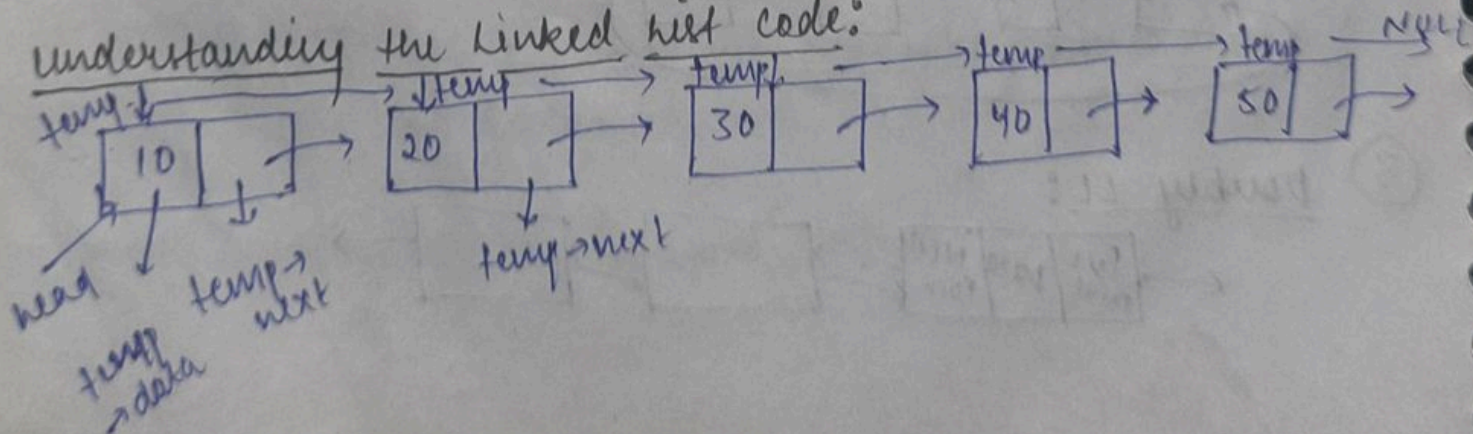 understanding the Linked List Code:
temp temp temp temp temp NULL
10 20 30 40 50
head temp→next temp→next
temp→data